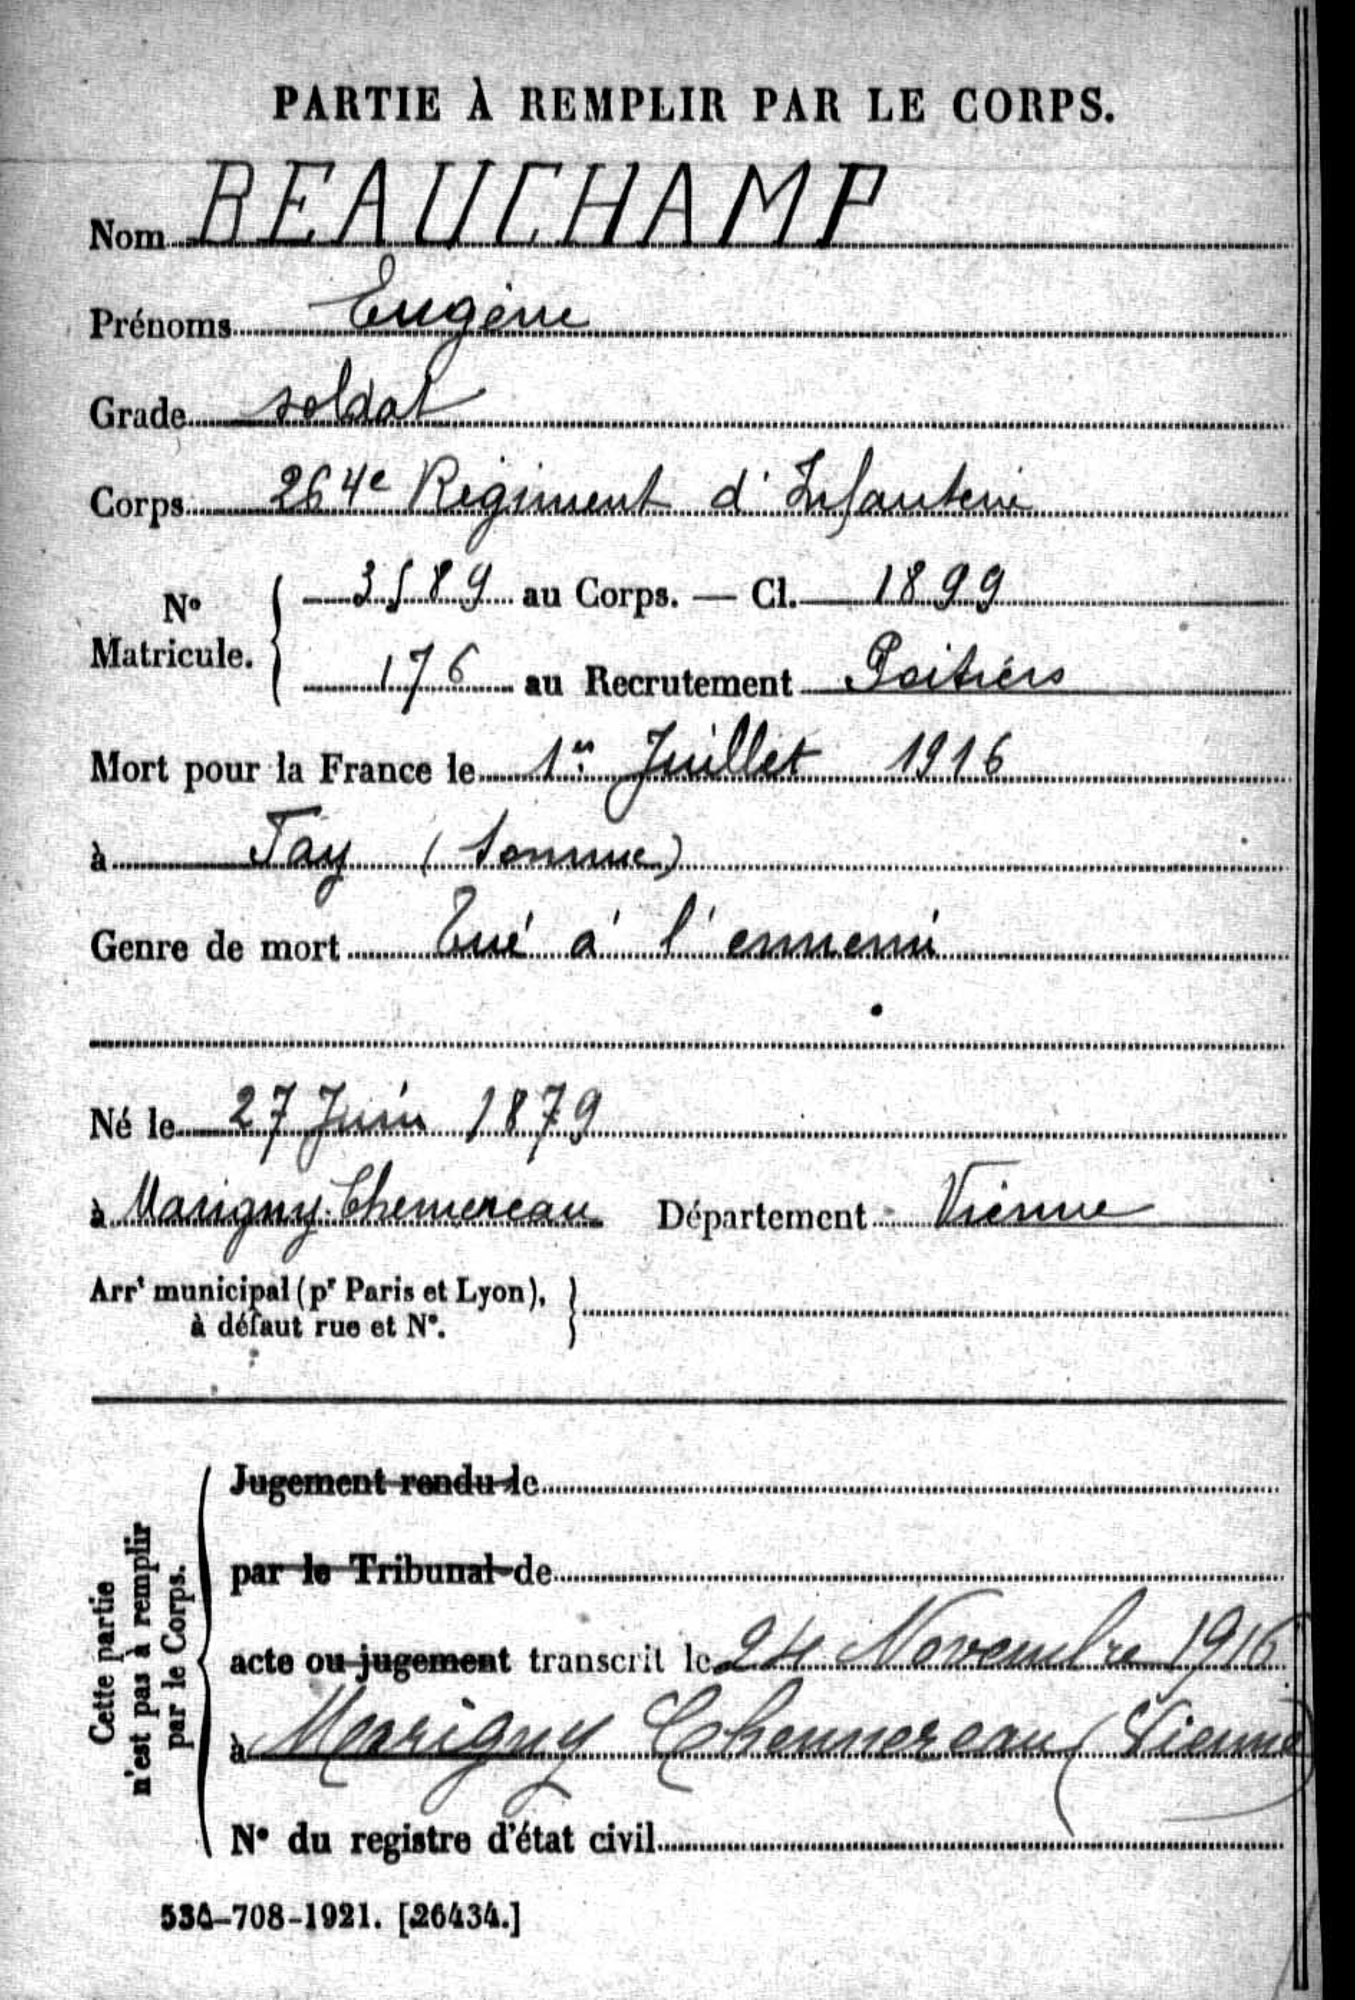 PARTIE À REMPLIR PAR LE CORPS.
Nom BEAUCHAMP
Prénoms Eugène
Grade soldat
Corps 264e Régiment d'Infanterie
N° Matricule. { 3589 au Corps. — Cl. 1899
176 au Recrutement Poitiers
Mort pour la France le 1er Juillet 1916
à Fay (Somme)
Genre de mort Tué à l'ennemi
Né le 27 Juin 1879
à Marigny-Chemereau Département Vienne
Arrt municipal (pr Paris et Lyon), }
à défaut rue et N°.
Cette partie
n'est pas à remplir
par le Corps.
Jugement rendu le
par le Tribunal de
acte ou jugement transcrit le 24 Novembre 1916
à Marigny Chemereau (Vienne)
N° du registre d'état civil
534-708-1921. [26434.]